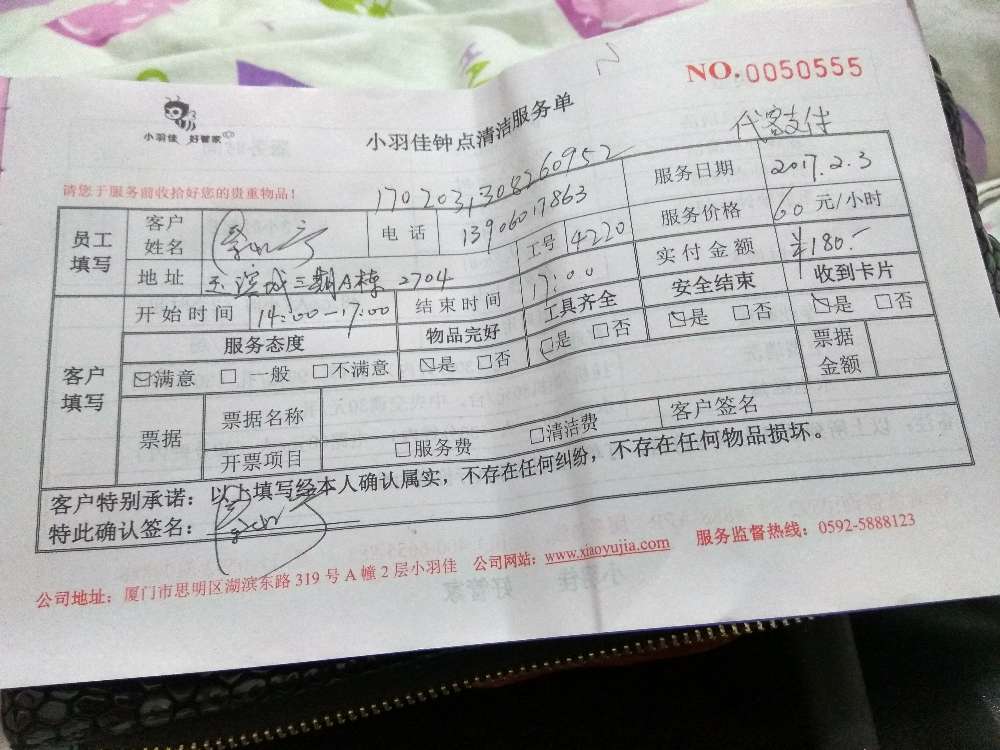 N
NO.0050555
小羽佳 好管家
小羽佳钟点清洁服务单
代客支付
请您于服务前收拾好您的贵重物品!
1702031308260952
员工填写 客户姓名 电话 13906017863 服务日期 2017.2.3
地址 三期A栋 2704 工号 4220 服务价格 60 元/小时
客户填写 开始时间 14:00-17:00 结束时间 17:00 实付金额 ¥180.-
服务态度 物品完好 工具齐全 安全结束 收到卡片
满意 一般 不满意 是 否 是 否 是 否 是 否
票据 票据名称 票据金额
开票项目 服务费 清洁费 客户签名
客户特别承诺:以上填写经本人确认属实,不存在任何纠纷,不存在任何物品损坏。
特此确认签名:
公司地址:厦门市思明区湖滨东路319号A幢2层小羽佳 公司网站:www.xiaoyujia.com 服务监督热线:0592-5888123